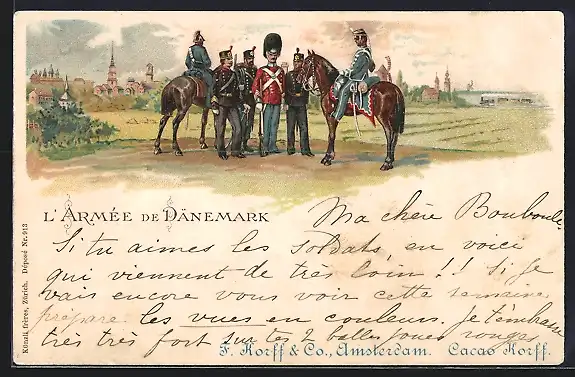 L'ARMÉE DE DÄNEMARK
Ma chère Bouboule,
Si tu aimes les soldats, en voici
qui viennent de très loin !! Si je
vais encore vous voir cette semaine,
prépare les vues en couleurs. Je t'embrasse
très très fort sur tes 2 belles joues rouges
F. Korff & Co., Amsterdam. Cacao Korff.
Künzli frères, Zürich. Déposé Nr. 913